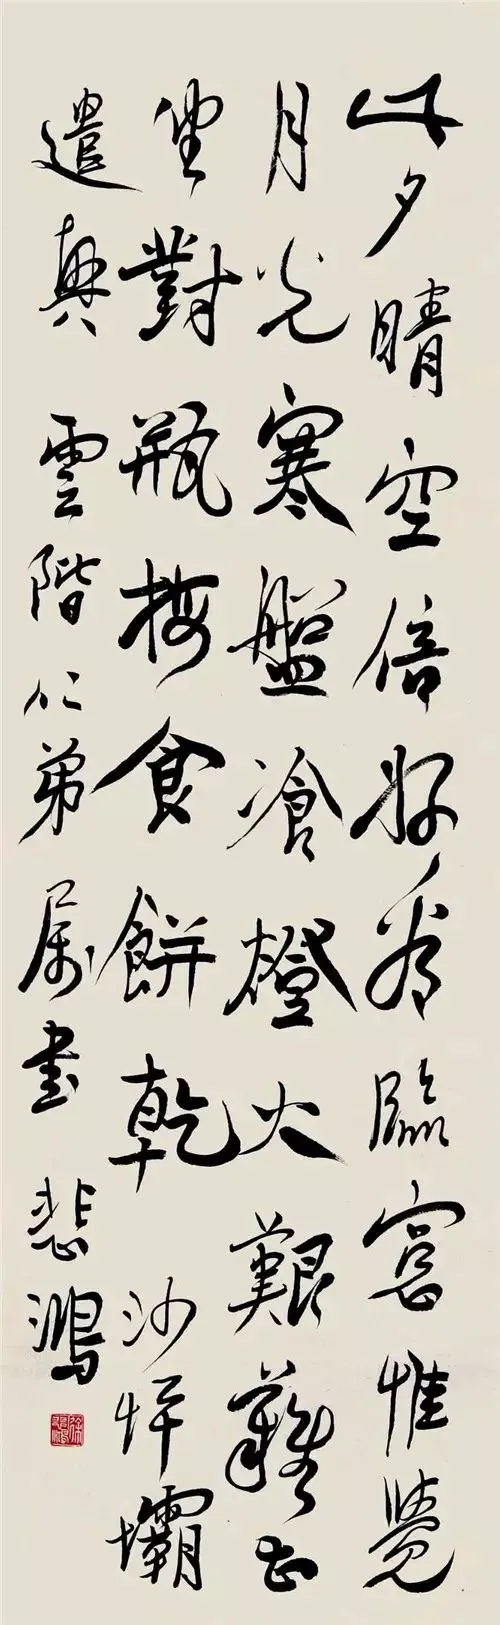 此夕晴空倍好看臨窗惟覺
月光寒盤飡燈火艱難甚
坐對瓶梅食餅乾 沙坪壩
遣興 雲階仁弟属書 悲鴻